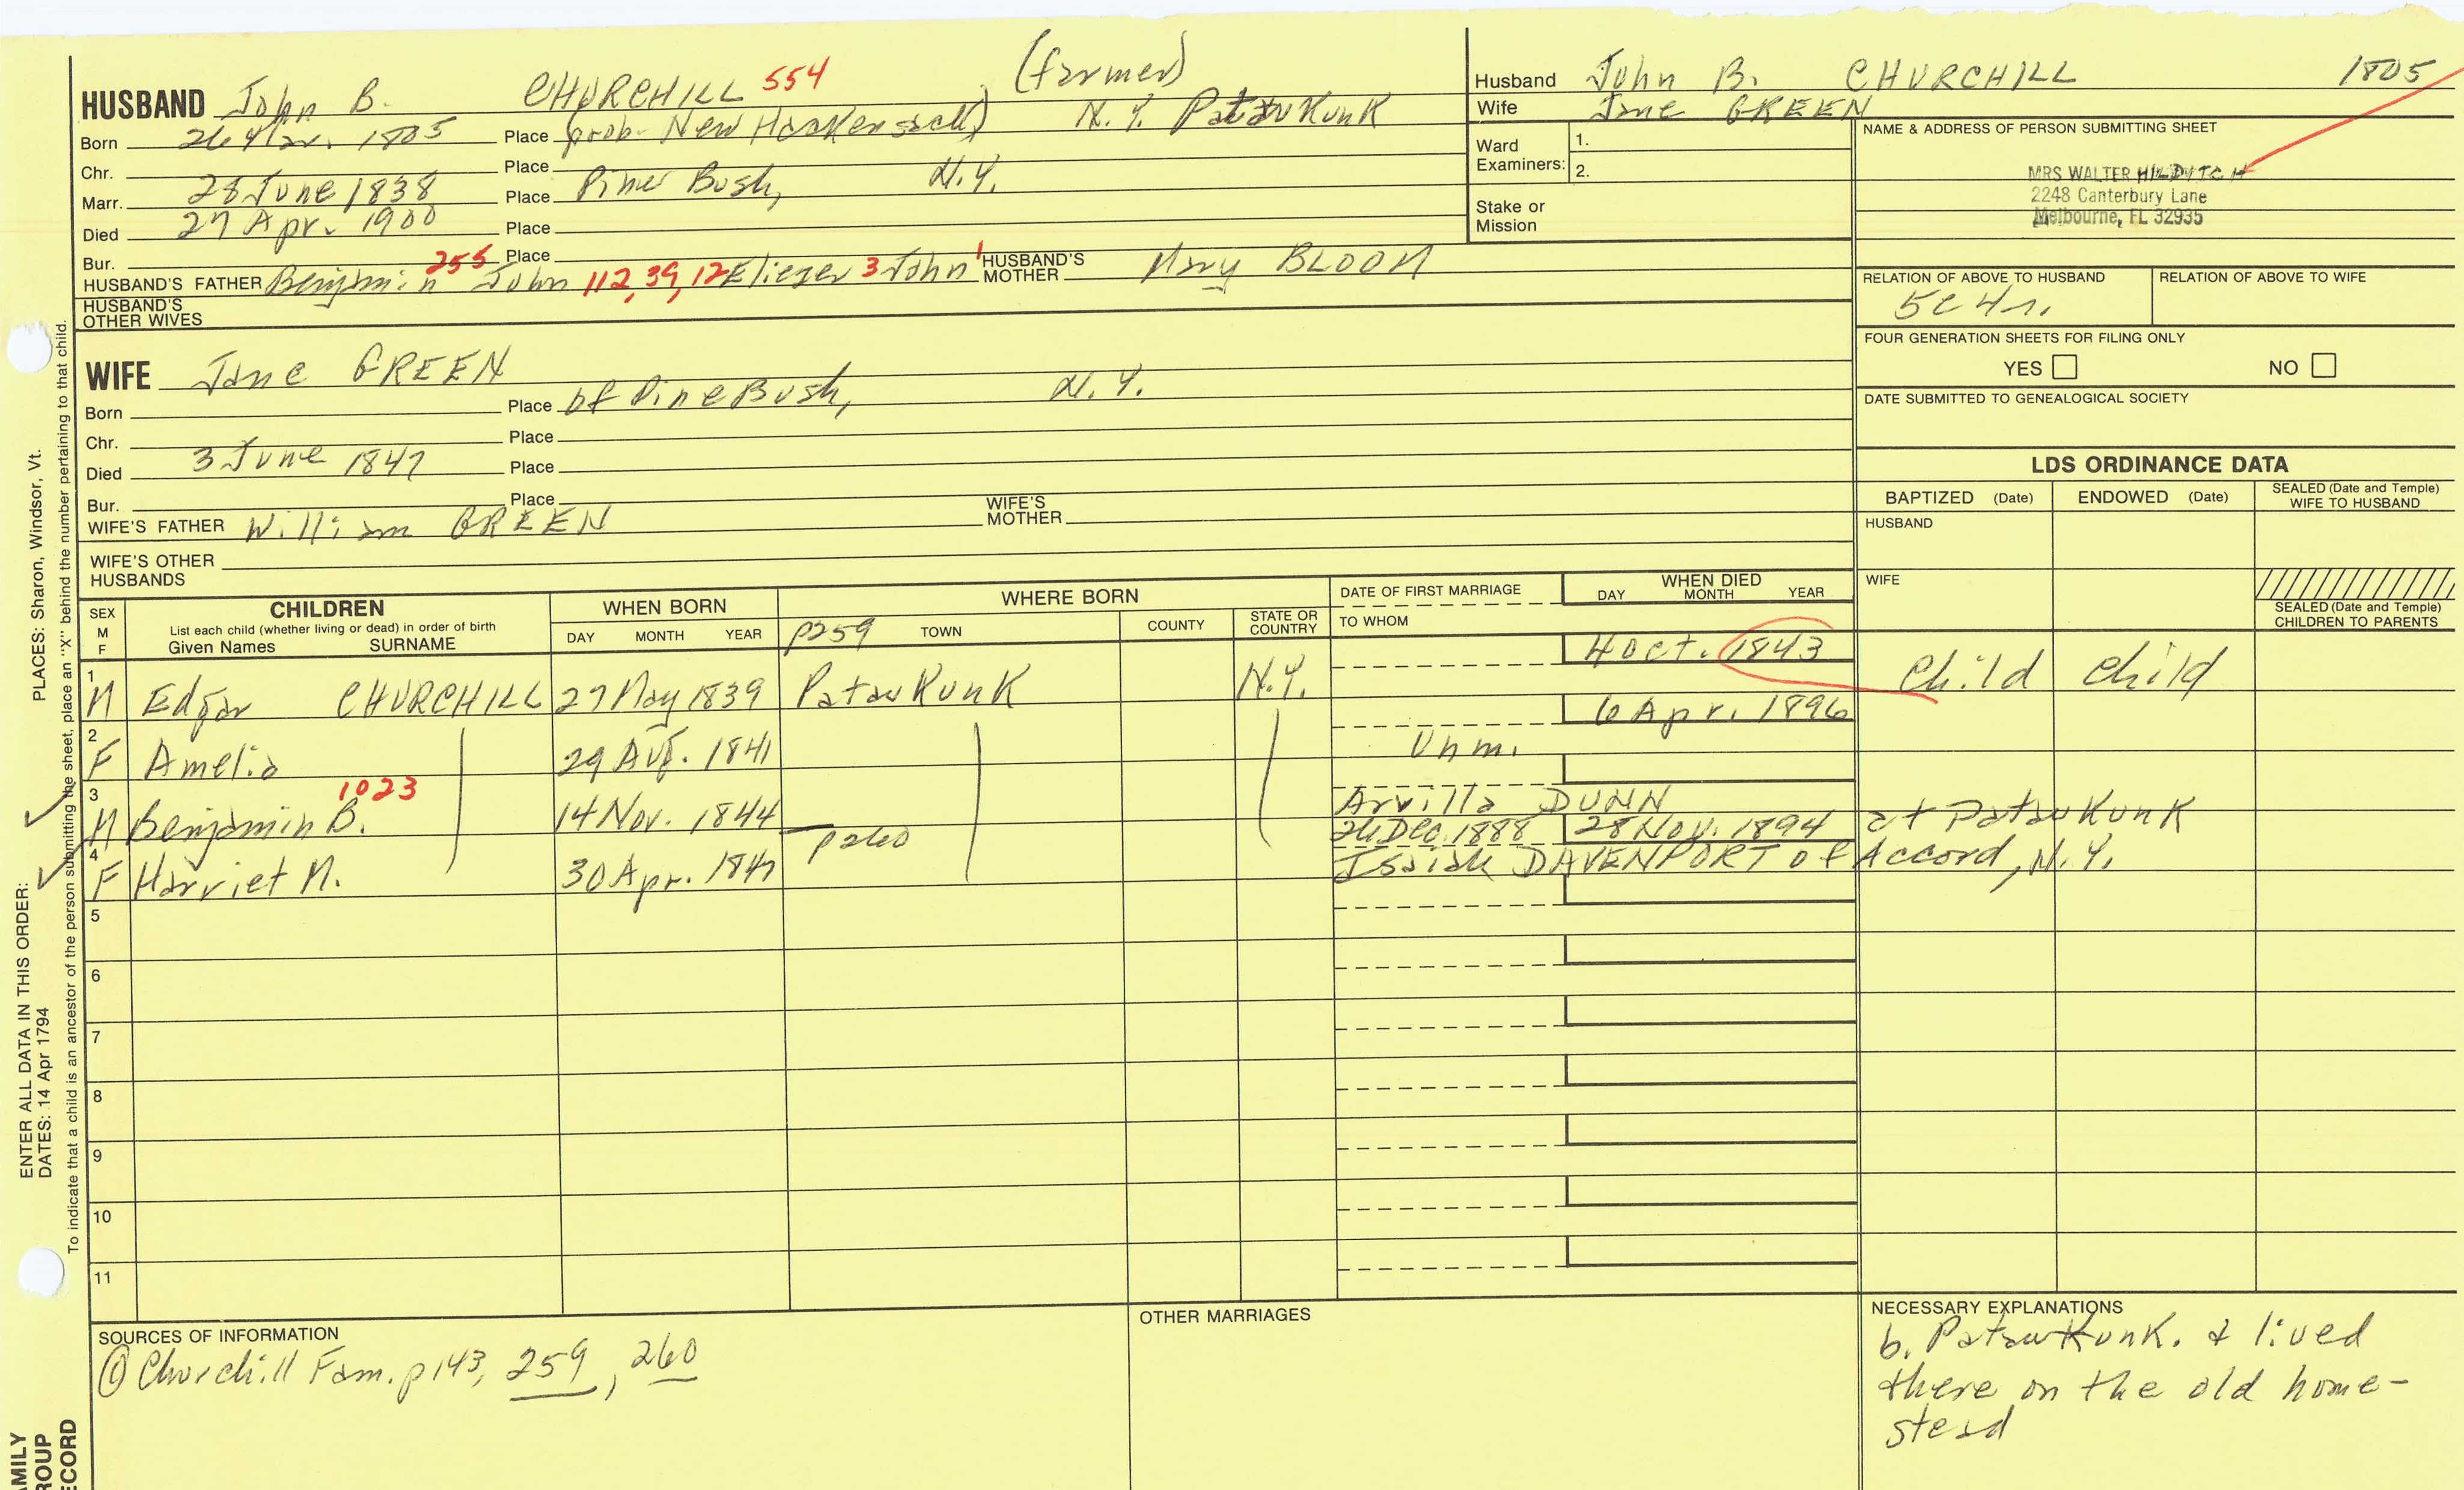 (farmer)
HUSBAND John B. CHURCHILL 554
Born 26 Mar. 1805 Place (prob. New Hackensack) N.Y. Patau Kunk
Chr. Place
Marr. 28 June 1838 Place Pine Bush, N.Y.
Died 27 Apr. 1900 Place
Bur. Place
HUSBAND'S FATHER Benjamin 255 John 112, 39, 12 Eliezer 3 John 1 HUSBAND'S MOTHER Mary BLOOM
HUSBAND'S OTHER WIVES
WIFE Jane GREEN
Born Place of Pine Bush, N.Y.
Chr. Place
Died 3 June 1847 Place
Bur. Place
WIFE'S FATHER William GREEN WIFE'S MOTHER
WIFE'S OTHER HUSBANDS
Husband John B. CHURCHILL 1805
Wife Jane GREEN
Ward Examiners: 1.
2.
Stake or Mission
NAME & ADDRESS OF PERSON SUBMITTING SHEET
MRS WALTER HILDITCH
2248 Canterbury Lane
Melbourne, FL 32935
RELATION OF ABOVE TO HUSBAND RELATION OF ABOVE TO WIFE
5c4r.
FOUR GENERATION SHEETS FOR FILING ONLY
YES NO
DATE SUBMITTED TO GENEALOGICAL SOCIETY
LDS ORDINANCE DATA
BAPTIZED (Date) ENDOWED (Date) SEALED (Date and Temple) WIFE TO HUSBAND
HUSBAND
WIFE
SEALED (Date and Temple) CHILDREN TO PARENTS
SEX M F CHILDREN WHEN BORN WHERE BORN DATE OF FIRST MARRIAGE WHEN DIED
List each child (whether living or dead) in order of birth
Given Names SURNAME DAY MONTH YEAR p259 TOWN COUNTY STATE OR COUNTRY TO WHOM DAY MONTH YEAR
4 Oct. 1843
1 M Edgar CHURCHILL 27 May 1839 Patau Kunk N.Y. Child Child
6 Apr. 1896
2 F Amelia 29 Aug. 1841 Unm.
1023
3 M Benjamin B. 14 Nov. 1844 Arvilla DUNN at Patau Kunk
p260 26 Dec. 1888 28 Nov. 1894
4 F Harriet M. 30 Apr. 1847 Isaiah DAVENPORT of Accord, N.Y.
5
6
7
8
9
10
11
SOURCES OF INFORMATION
① Churchill Fam. p143, 259, 260
OTHER MARRIAGES
NECESSARY EXPLANATIONS
b. Patau Kunk. & lived
there on the old home-
stead
ENTER ALL DATA IN THIS ORDER:
DATES: 14 Apr 1794 PLACES: Sharon, Windsor, Vt.
To indicate that a child is an ancestor of the person submitting the sheet, place an "X" behind the number pertaining to that child.
AMILY
ROUP
ECORD